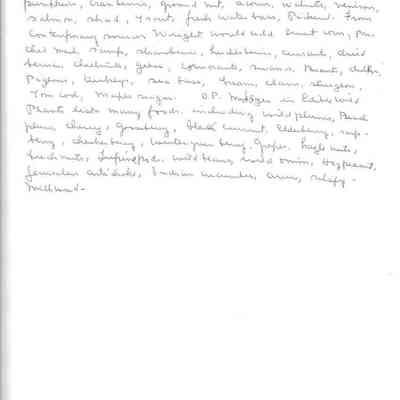 pumpkin, cranberries, ground nut, acorns, walnuts, venison,
salmon, shad, trout, fresh water bass, Pickerel. From
Contemporary sources Wright would add sweet corn, par-
ched meal, samp, strawberries, huckleberries, currants, dried
berries, chestnuts, geese, cormorants, swans, ducks,
Pigeons, turkeys, sea bass, clams, sturgeon,
Tom cod, Maple sugar. O.P. in Edible Wild
Plants lists many foods, including wild plums, Beach
plum, cherry, gooseberry, black currant, Elderberry, rasp-
berry, checkerberry, wintergreen berry, grapes, hazle nuts,
beech nuts, wild beans, wild onion, Hog peanut,
Jerusalem artichoke, Indian cucumber, arum,
milkweed-